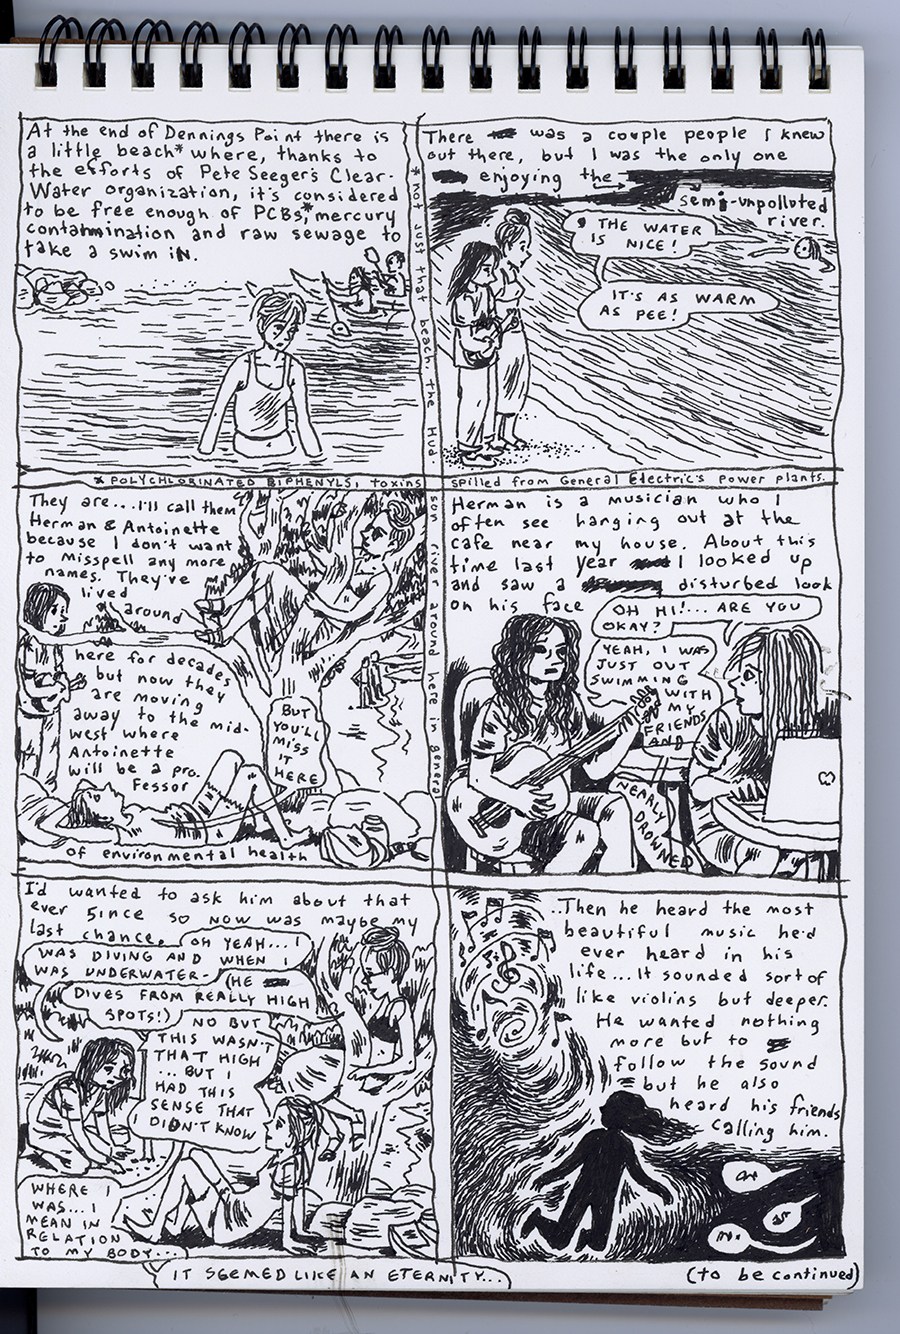 At the end of Dennings Point there is
a little beach* where, thanks to
the efforts of Pete Seeger's Clear-
Water organization, it's considered
to be free enough of PCBs,* mercury
contamination and raw sewage to
take a swim in.
* Not just that beach: the Hud
son river around here in general
There was a couple people I knew
out there, but I was the only one
enjoying the
semi-unpolluted
river.
THE WATER
IS NICE!
IT'S AS WARM
AS PEE!
* POLYCHLORINATED BIPHENYLS, TOXINS
spilled from General Electric's power plants.
They are...I'll call them
Herman & Antoinette
because I don't want
to misspell any more
names. They've
lived
around
here for decades
but now they
are moving
away to the mid-
west where
Antoinette
will be a pro-
fessor
of environmental health
BUT
YOU'LL
MISS
IT
HERE
Herman is a musician who I
often see hanging out at the
cafe near my house. About this
time last year I looked up
and saw a disturbed look
on his face
OH HI!... ARE YOU
OKAY?
YEAH, I WAS
JUST OUT
SWIMMING
WITH
MY
FRIENDS
AND
NEARLY
DROWNED
I'd wanted to ask him about that
ever since so now was maybe my
last chance.
OH YEAH... I
WAS DIVING AND WHEN I
WAS UNDERWATER-
(HE
DIVES FROM REALLY HIGH
SPOTS!)
NO BUT
THIS WASN'T
THAT HIGH
... BUT I
HAD THIS
SENSE THAT
I DIDN'T KNOW
WHERE I
WAS... I
MEAN IN
RELATION
TO MY BODY...
IT SEEMED LIKE AN ETERNITY...
..Then he heard the most
beautiful music he'd
ever heard in his
life...It sounded sort of
like violins but deeper.
He wanted nothing
more but to
follow the sound
but he also
heard his friends
calling him.
(to be continued)